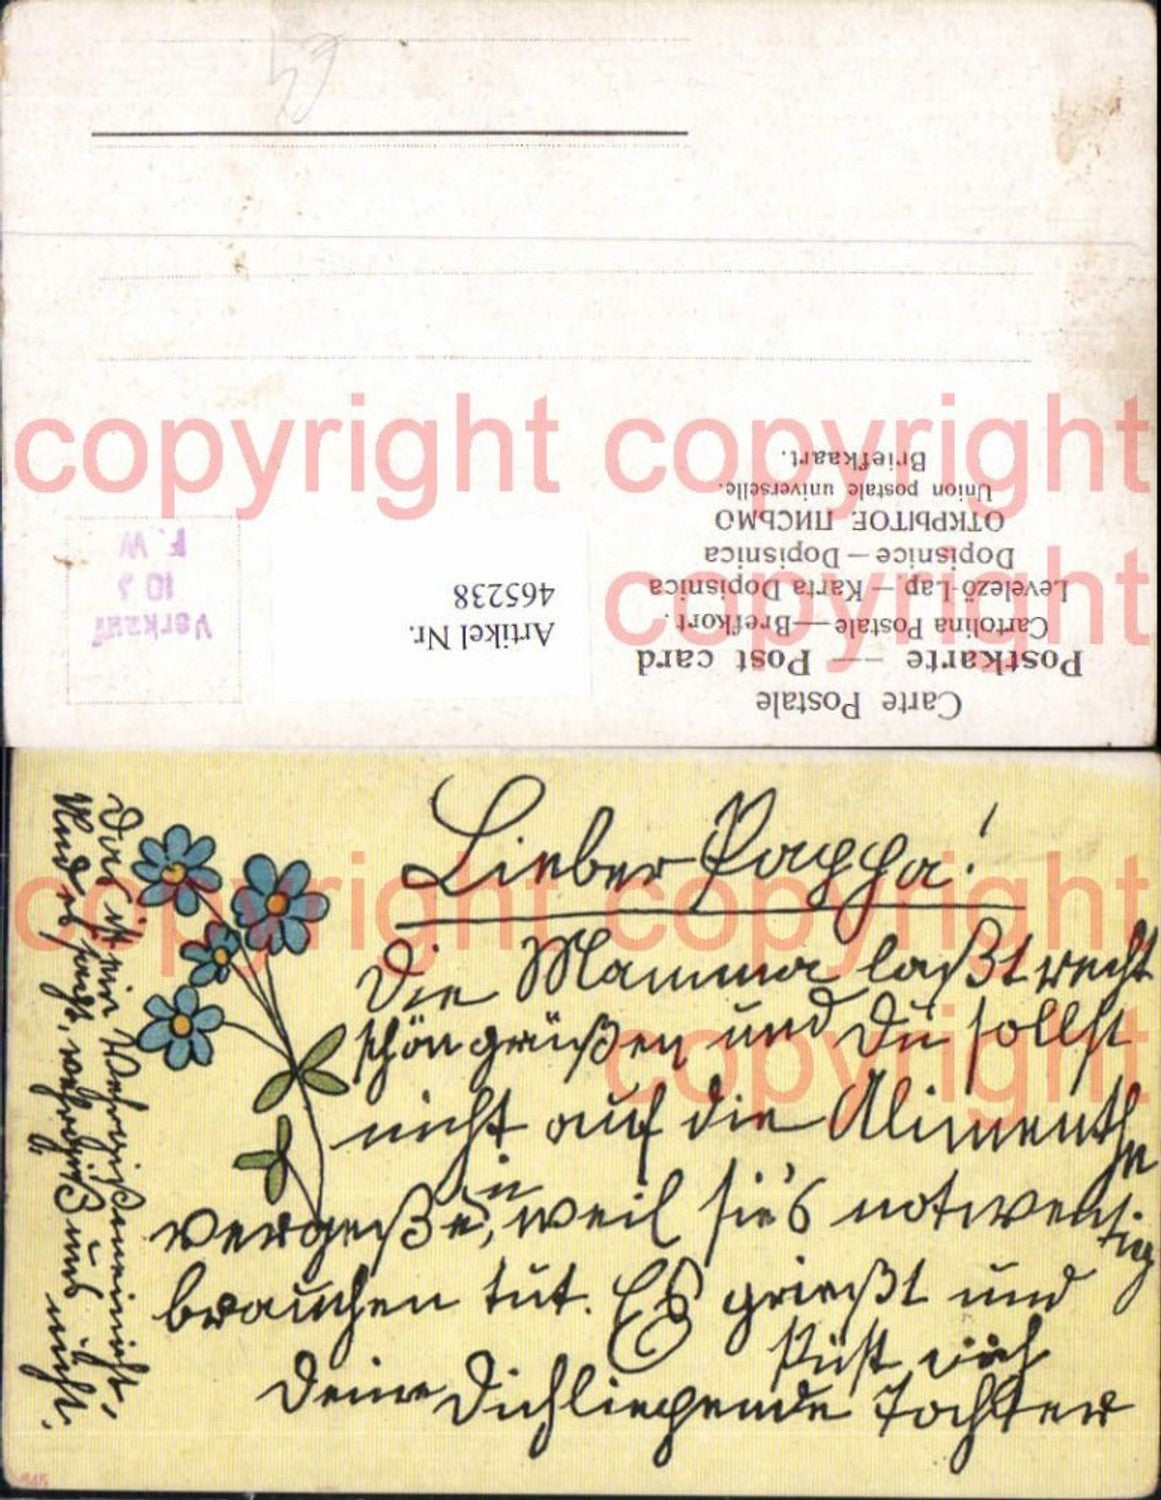 Carte Postale
Postkarte — Post card
Cartolina Postale — Brefkort.
Levelező-Lap — Karta Dopisnica
Dopisnice — Dopisnica
ОТКРЫТОЕ ПИСЬМО
Union postale universelle.
Briefkaart.
Artikel Nr.
465238
Verkauf
F. W
copyright copyright
copyright
Lieber Pappa!
Die Mamma laßt recht
schön grüßen und Du sollst
nicht auf die Alimenthe
vergeße, weil sie's notwentig
brauchen tut. Es grießt und
küst dich
Deine Dichliepende Tochter
Das ist ein Vergißmeinicht,
und nicht.
copyright copyright
copyright